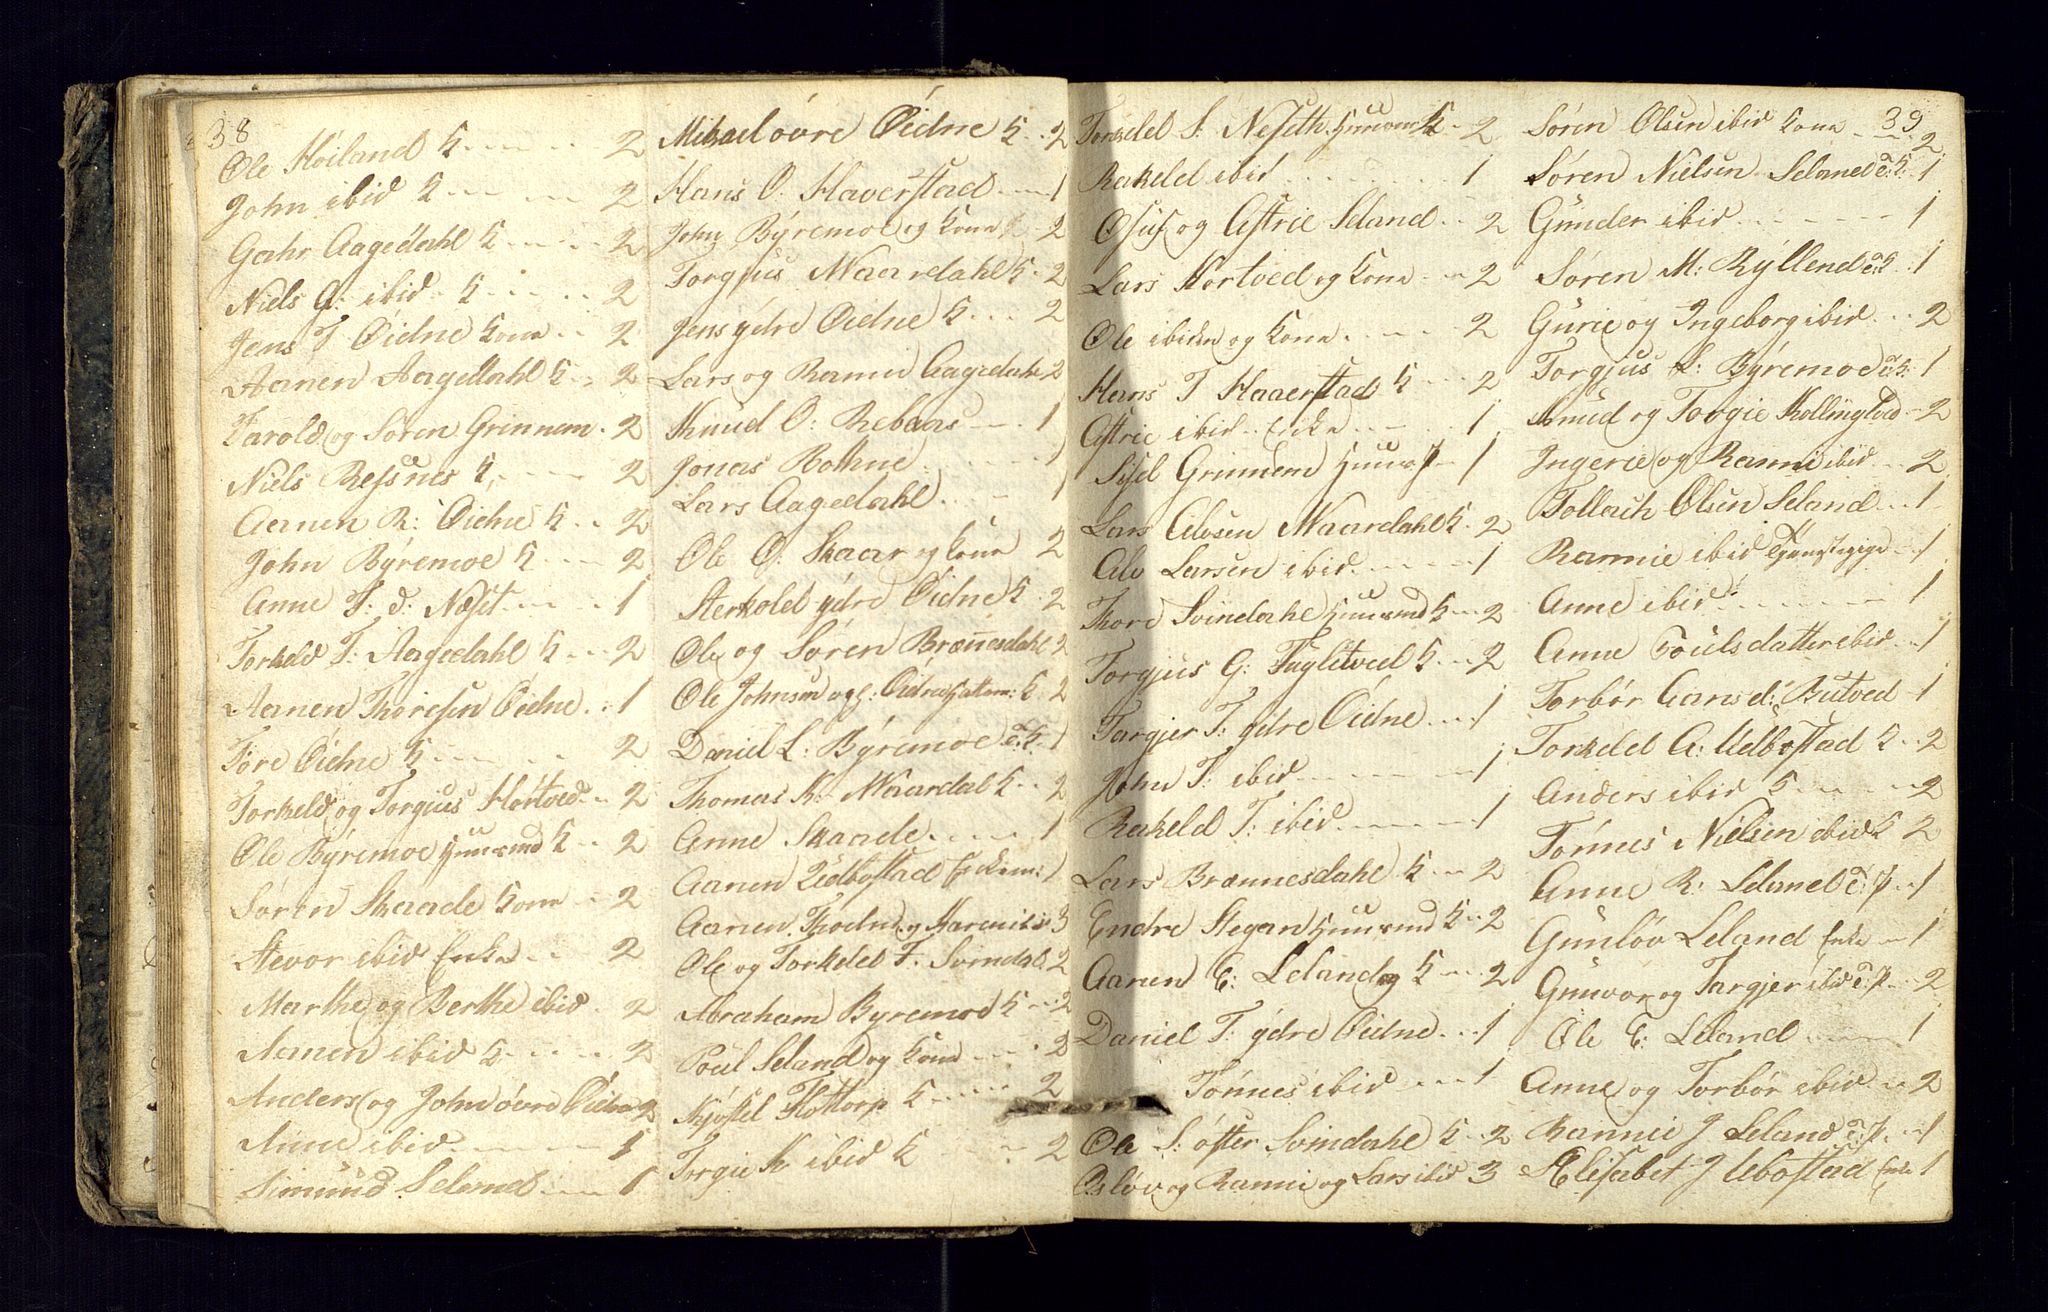 38
Ole Höiland K - - - 2
John ibid K - - - 2
Gahr Aagedahl K - - - 2
Niels G: ibid K - - - 2
Jens T Öidne Kone - - 2
Aanen Aagedahl K - - 2
Tarold og Sören Grinnem - 2
Niels Refsnes K - - - 2
Aanen R: Öidne K - - 2
John Býremoe K - - - 2
Anne T: d: Næset - - - 1
Torkeld T: Aagedahl K - - 2
Aanen Thoresen Öidne - - 1
Tore Öidne K - - - 2
Torkeld og Torgius Hörtved - - 2
Ole Býremoe K - - 2
Sören Skaade Kone - - 2
Stevor ibid Enke - - 2
Marthe og Berthe ibid - 2
Aanen ibid K - - - 2
Anders og John övre Öidne 2
Anne ibid - - - 1
Simund Seland - - - 1
Mikael övre Öidne K - - 2
Hans O: Haverstad - - - 1
John Býremoe og Kone 2
Torgius Maardahl K - 2
Jens ÿdre Öidne K - - - 2
Lars og Ranni Aagedahl 2
Knud O: Rebaas - - - 1
Jonas Bothne - - - 1
Lars Aagedahl - - - 1
Ole O: Skaar og Kone 2
Sterkoled ÿdre Öidne K - 2
Ole og Sören Brænnesdahl 2
Ole Johnsen og Öidne K 2
Daniel L: Býremoe d: K - 1
Thomas K: Maardal K - - 2
Anne Skaade - - - 1
Aanen Udbostad Enkem: 1
Aanen, og Karen ibid 3
Ole og Torkeld T. Svindal 2
Abraham Byremoe K - - 2
Poul Seland og Kone - - - 2
Kjöstel Flottorp K - - - 2
Torgie K ibid K - - 2
Torkeld S: Neseth K - 2
Rakeld ibid - - - 1
Osuf og Astrie Seland - - 2
Lars Hörtved og Kone - - 2
Ole ibiden og Kone - - - 2
Hans T Haaerstad K - - - 2
Astrie ibid - Enke - - - 1
Sisel Grinnem - 1
Lars Alvsen Maardahl K - 2
Alv Larsen ibid - - - 1
Thore Svindahl K - - 2
Torgius G: Fugletved K - - 2
Targier T: ÿdre Öidne - - - 1
John T: ibid - - - 1
Rakeld T: ibid - - - 1
Lars Brænnesdahl K - - 2
Endre Stegan K - 2
Aanen E: Leland og K - - 2
Daniel T: ÿdre Öidne - - - 1
Tönnes ibid - - - 1
Ole S: öfter Svindahl K - - 2
Oslöv og Ranni og Lars ibid 3
39
Sören Olsen ibid Kone - - 2
Sören Nielsen Seland d: K: 1
Gunder ibid - - - 1
Sören M: Rýllend d: K - 1
Gurie og Ingeborg ibid - - 2
Torgjus L: Býremoe d: K: 1
Knud og Torgie - 2
Ingerie og Ranni ibid - - 2
Tollach Olsen Seland - - - 1
Rannie ibid Tjenestepige - - 1
Anne ibid - - - 1
Anne Poulsdatter ibid - - 1
Torbör Aans d: Butved - 1
Torkeld A: Udbostad K - - 2
Anders ibid K - - - 2
Tönnes Nielsen ibid K 2
Anne R: Leland d: p - - 1
Gunlöv Leland Enke - 1
Gunvor og Targjer ibid d: p - - 2
Ole E: Leland - - - 1
Anne og Torbör ibid - - 2
Rannie J Leland d: p - - 1
Elisabet J Ubostad Enke 1